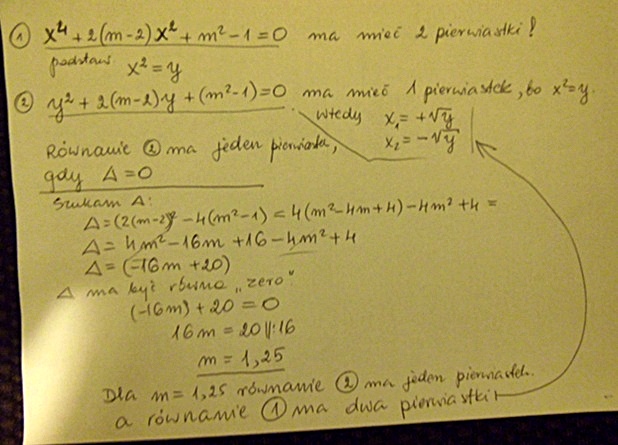 ① x⁴ + 2(m-2)x² + m² - 1 = 0 ma mieć 2 pierwiastki!
podstaw. x² = y
② y² + 2(m-2)y + (m²-1) = 0 ma mieć 1 pierwiastek, bo x²=y.
wtedy x₁ = +√y
x₂ = -√y
Równanie ② ma jeden pierwiastek,
gdy Δ = 0
Szukam Δ:
Δ = (2(m-2))² - 4(m²-1) = 4(m²-4m+4) - 4m² + 4 =
Δ = 4m² - 16m + 16 - 4m² + 4
Δ = (-16m + 20)
Δ ma być równa „zero"
(-16m) + 20 = 0
16m = 20 ||:16
m = 1,25
Dla m = 1,25 równanie ② ma jeden pierwiastek.
a równanie ① ma dwa pierwiastki